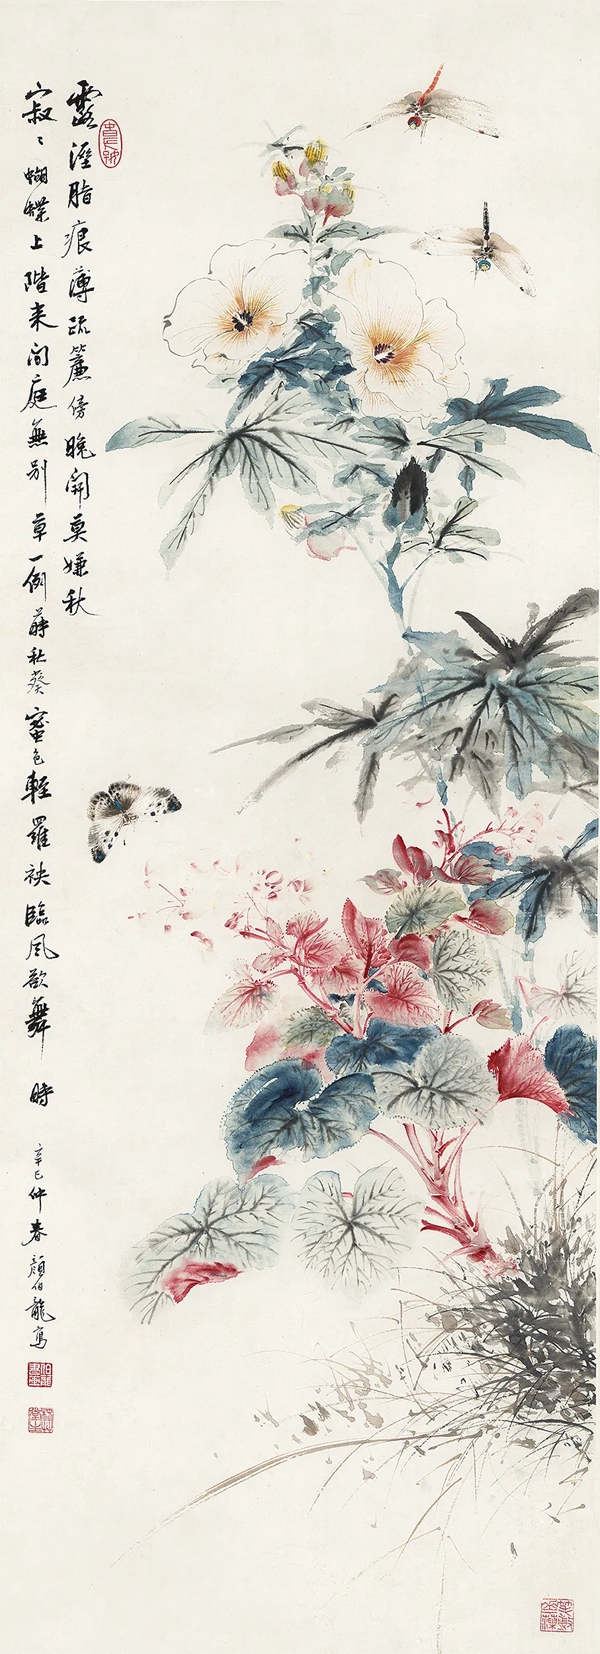 露溼脂痕薄疏簾傍晚開莫嫌秋
寂〻蝴蝶上階来間庭無别草一例蒔秋葵蜜色輕羅袂臨風欲舞時
辛巳仲春顔伯龍寫